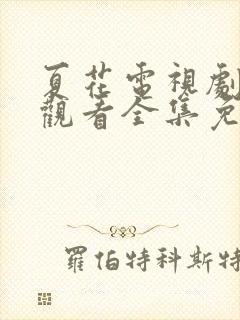 夏花電視劇
觀看全集免
羅伯特科斯特